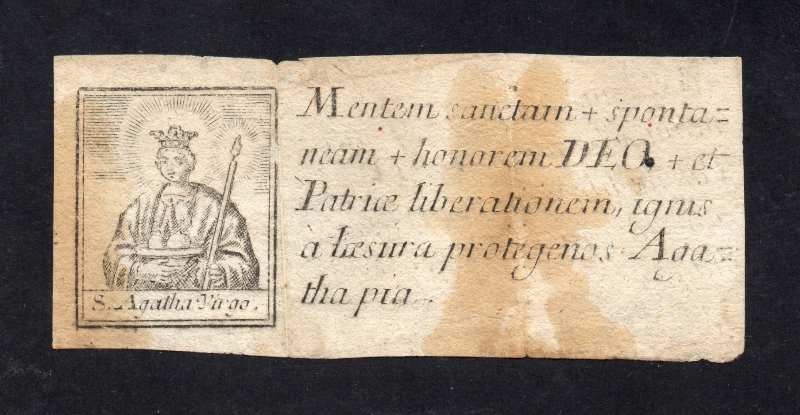 S. Agatha Virgo.
Mentem sanctam + sponta=
neam + honorem DEO, + et
Patriæ liberationem, ignis
à læsura protegenos Aga=
tha pia.